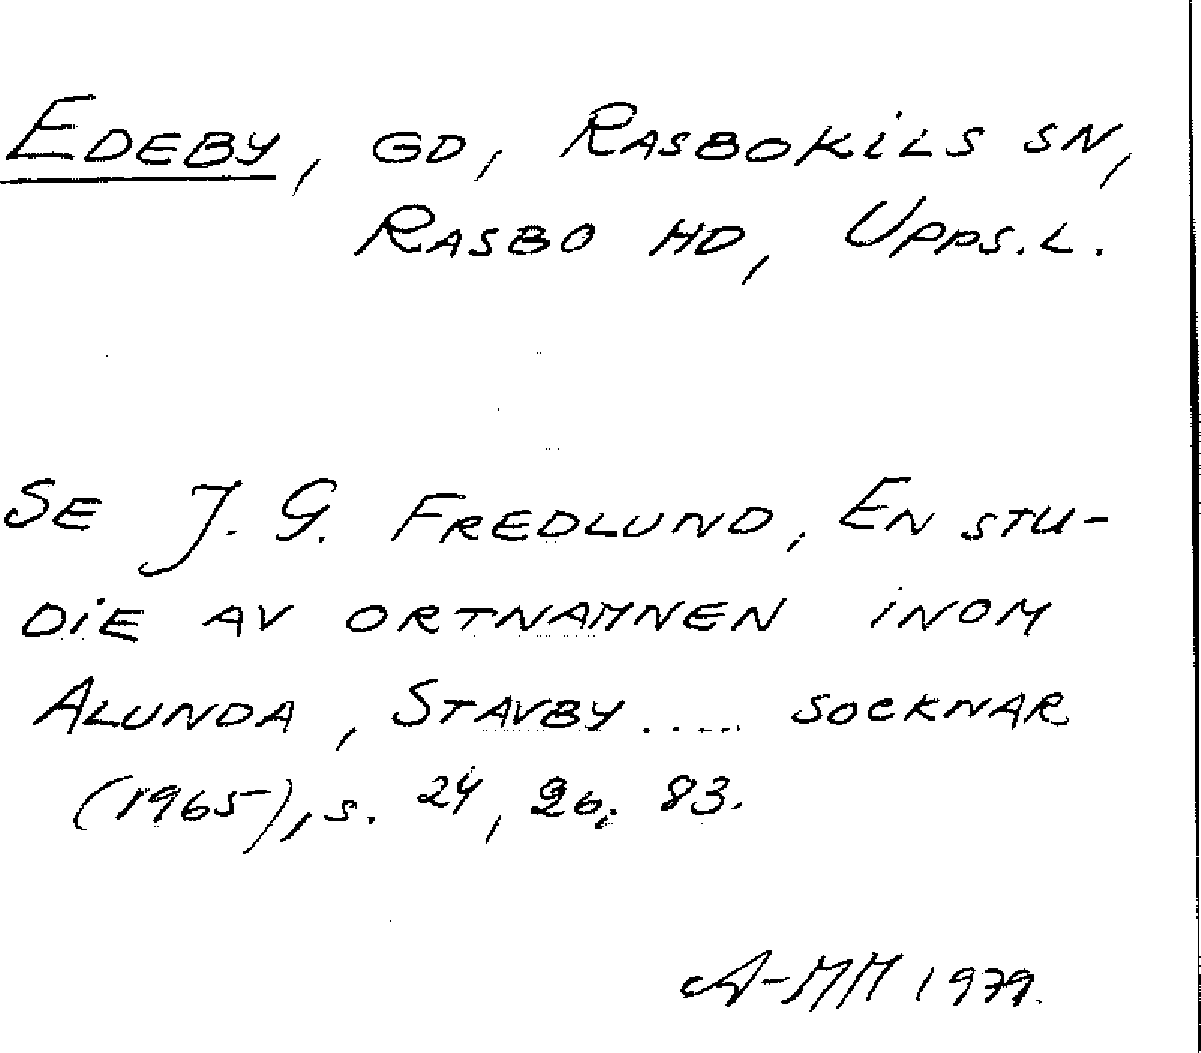 EDEBY, GD, RASBOKILS SN,
RASBO HD, UPPS.L.
SE J. G. FREDLUND, EN STU-
DIE AV ORTNAMNEN INOM
ALUNDA, STAVBY ..... SOCKNAR
(1965), S. 24, 26, 83.
A-MM 1979.